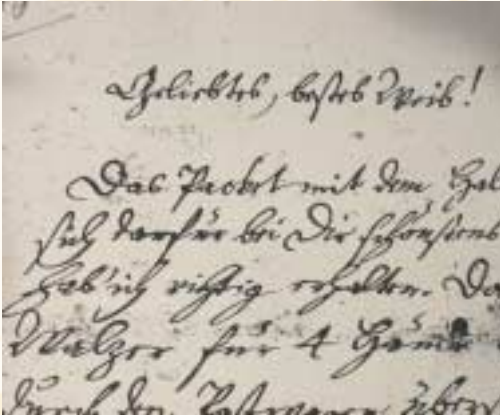 Geliebtes, bestes Weib!
Das Packet mit dem Hal
sich darfür bei Dir schönstens
hab' ich richtig erhalten. Da
Walzer für 4 Hände
durch den Postwagen über